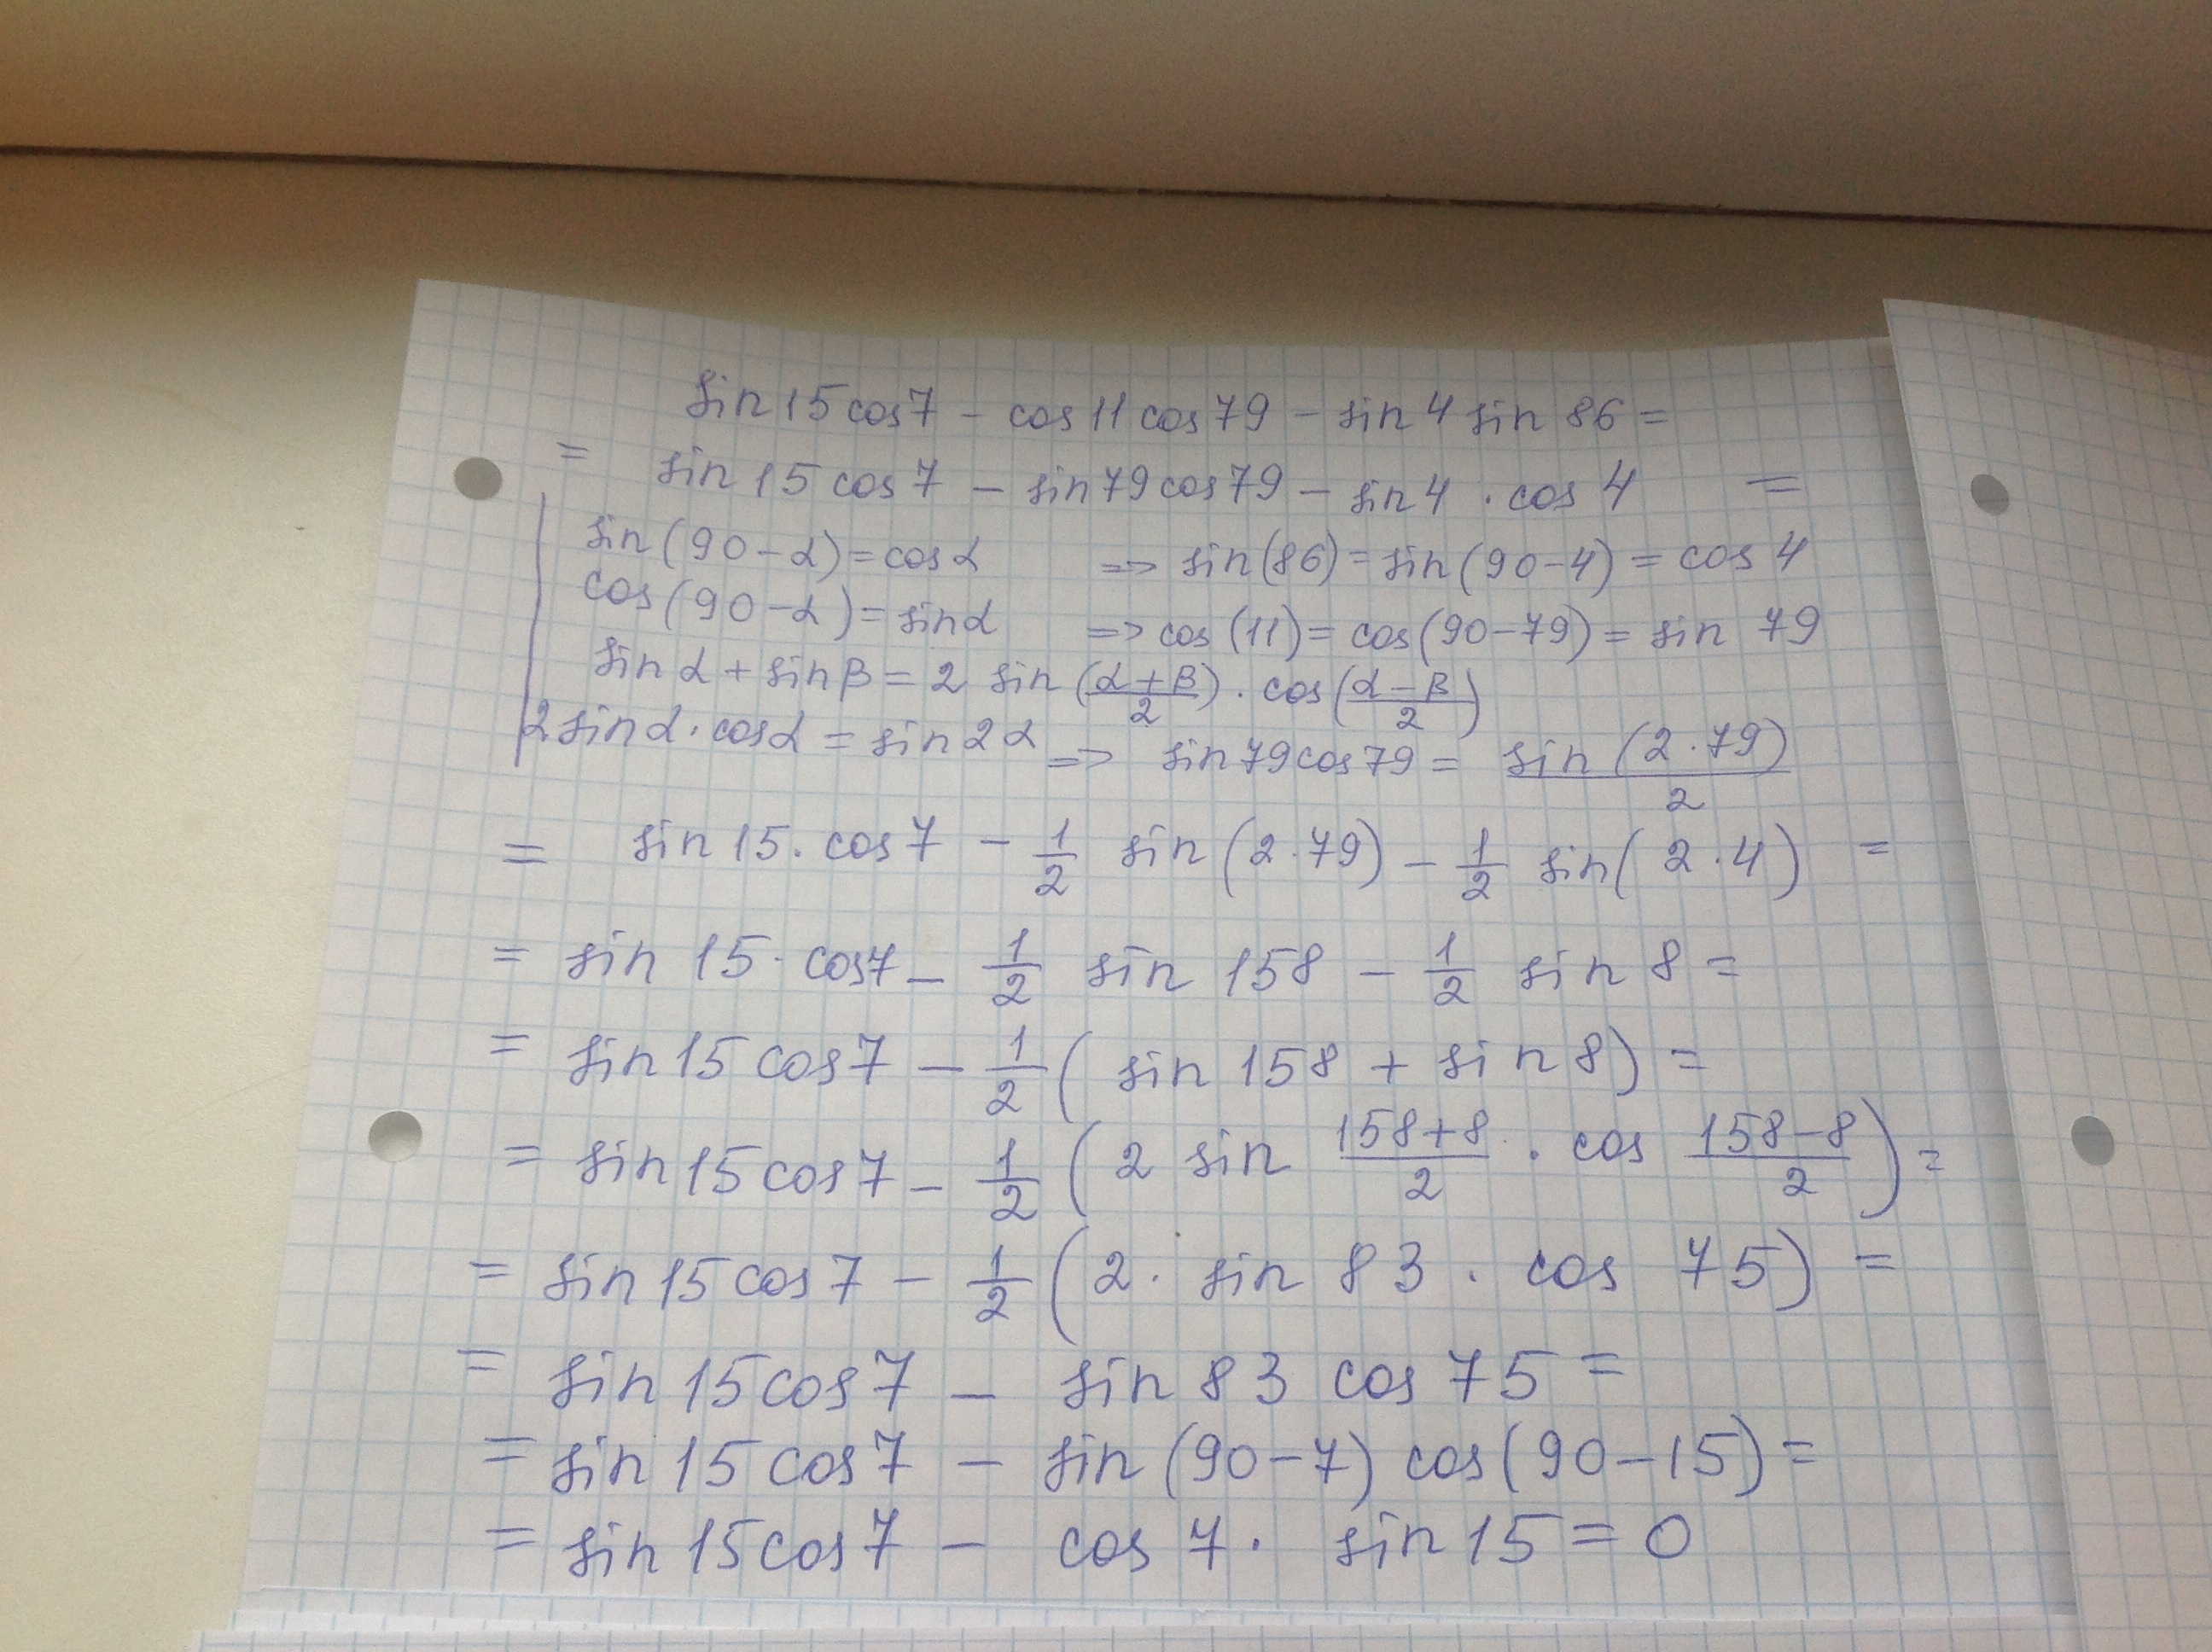 sin 15 cos 7 - cos 11 cos 79 - sin 4 sin 86 =
= sin 15 cos 7 - sin 79 cos 79 - sin 4 · cos 4 =
sin (90 - α) = cos α => sin (86) = sin (90 - 4) = cos 4
cos (90 - α) = sin α => cos (11) = cos (90 - 79) = sin 79
sin α + sin β = 2 sin (α + β / 2) · cos (α - β / 2)
2 sin α · cos α = sin 2α => sin 79 cos 79 = sin (2 · 79) / 2
= sin 15 · cos 7 - 1/2 sin (2 · 79) - 1/2 sin (2 · 4) =
= sin 15 · cos 7 - 1/2 sin 158 - 1/2 sin 8 =
= sin 15 cos 7 - 1/2 (sin 158 + sin 8) =
= sin 15 cos 7 - 1/2 (2 sin 158 + 8 / 2 · cos 158 - 8 / 2) =
= sin 15 cos 7 - 1/2 (2 · sin 83 · cos 75) =
= sin 15 cos 7 - sin 83 cos 75 =
= sin 15 cos 7 - sin (90 - 7) cos (90 - 15) =
= sin 15 cos 7 - cos 7 · sin 15 = 0